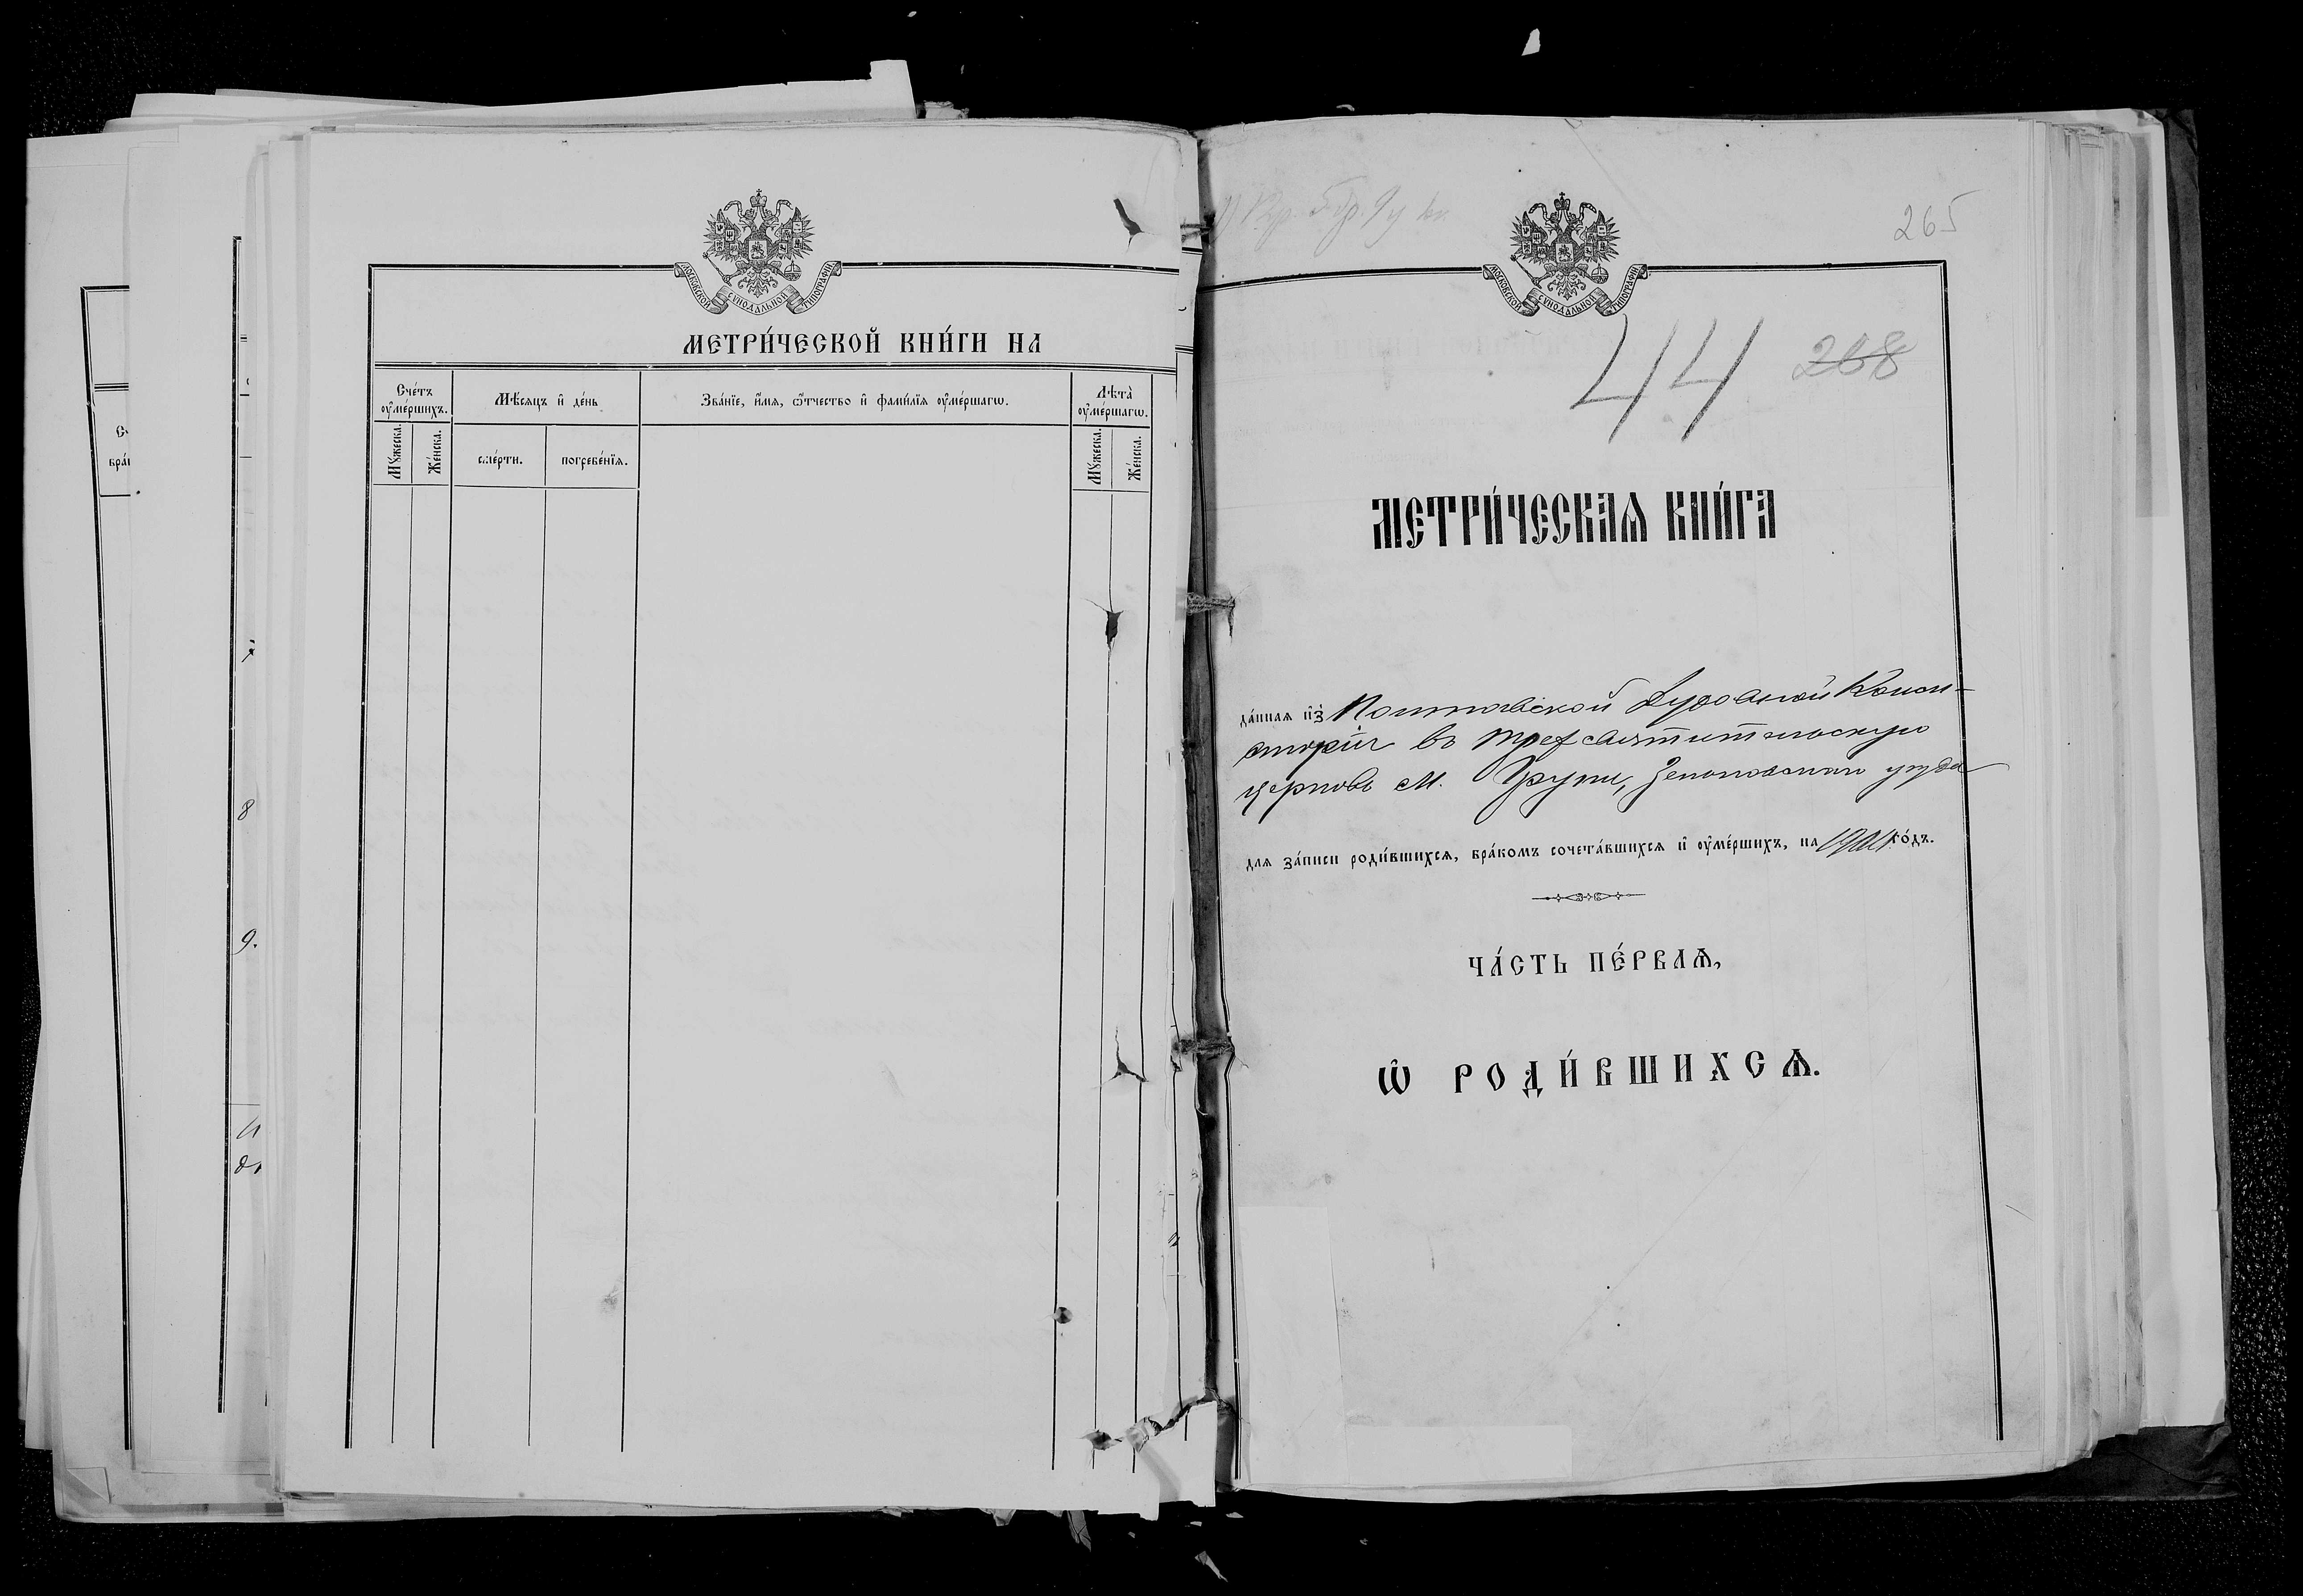 МОСКОВСКОЙ СѴНОДАЛЬНОЙ ТИПОГРАФІИ
МЕТРИ́ЧЕСКОЙ КНИ́ГИ НА
Сче́тъ
оу҆ме́ршихъ.
Мѣ́сяцъ и҆ де́нь
Зва́нїе, и҆́мя, ѻ҆́тчество и҆ фами́лїя оу҆ме́ршагѡ.
Лѣта̀
оу҆ме́ршагѡ.
Мꙋ́жеска.
Же́нска.
сме́рти.
погребе́нїя.
Мꙋ́жеска.
Же́нска.
8
9.
265
МОСКОВСКОЙ СѴНОДАЛЬНОЙ ТИПОГРАФІИ
44 268
МЕТРИ́ЧЕСКАѦ КНИ́ГА
да́нная и҆з̾ Полтавской Духовной Конси-
сторіи въ Трехсвятительскую
церковь м. Груни, Зеньковскаго уѣзда
для за́писи роди́вшихся, бра́комъ сочета́вшихся и҆ оу҆ме́ршихъ, на 1904 го́дъ.
ЧА́СТЬ ПЕ́РВАѦ,
Ѽ РОДИ́ВШИХСѦ.